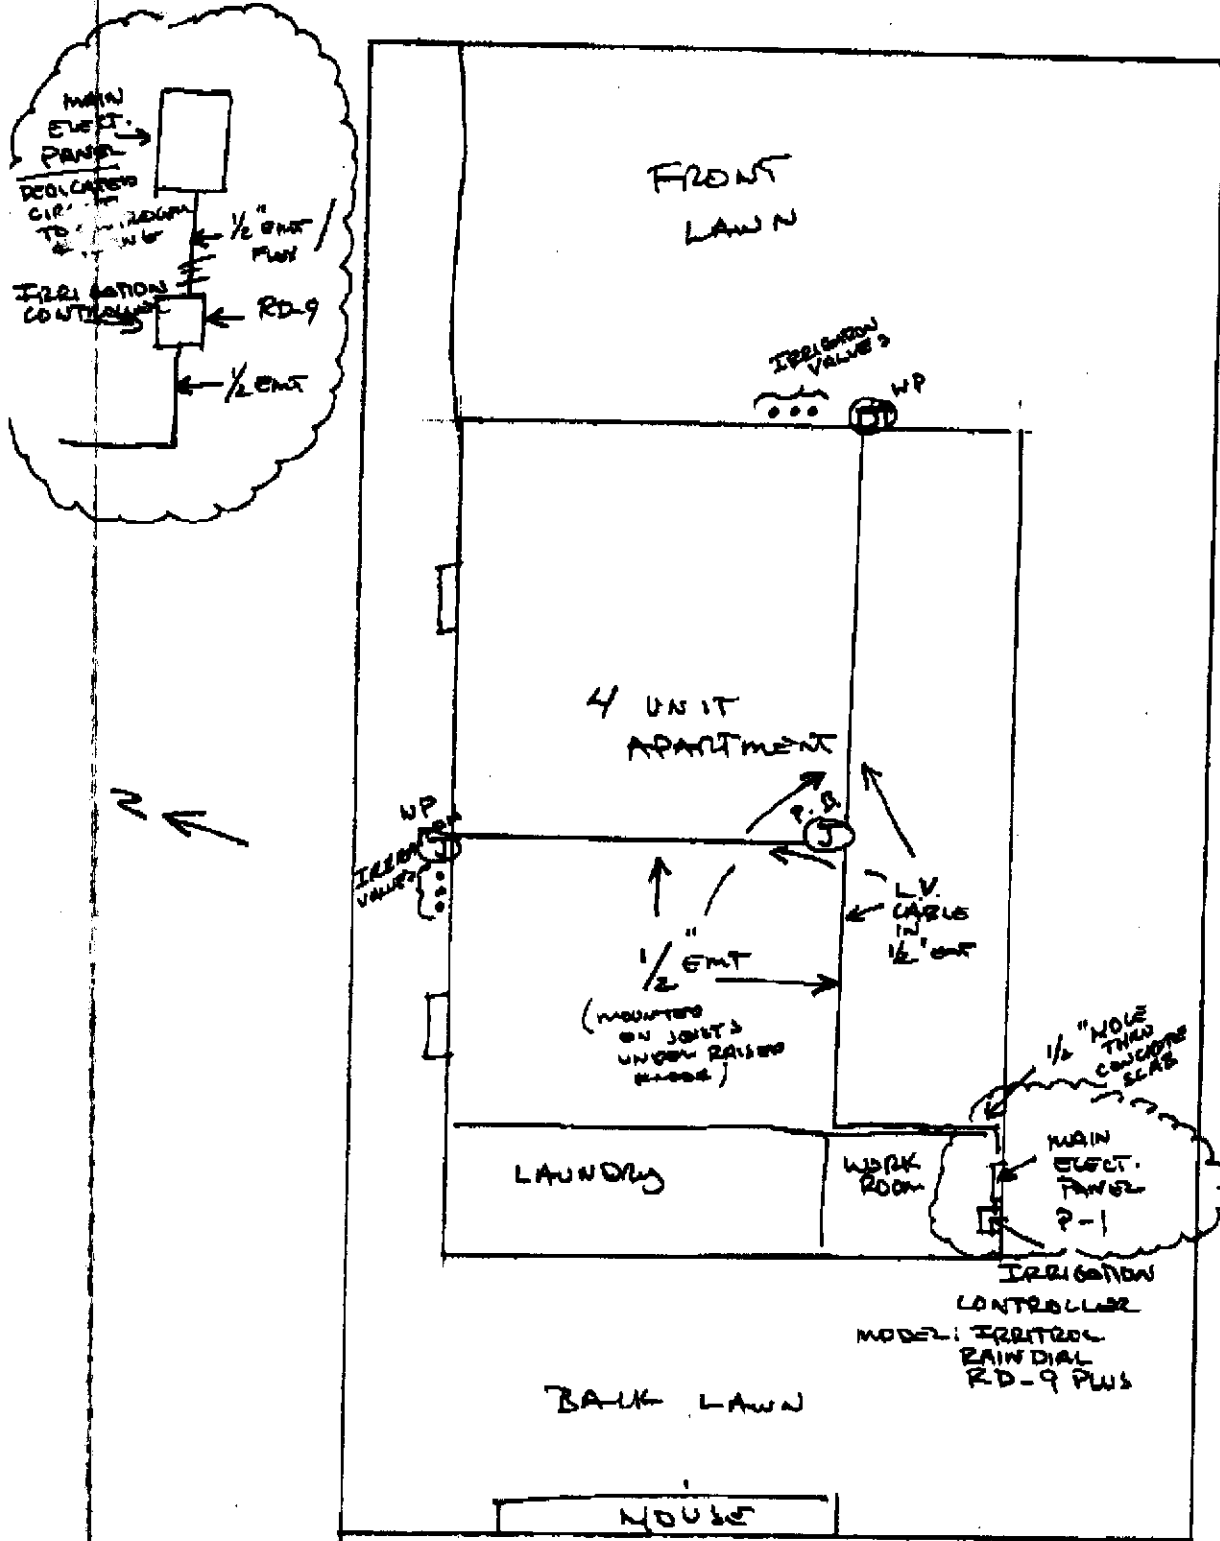 MAIN
ELECT.
PANEL
DEDICATED
TO
1/2" EMT
FLEX
IRRIGATION
CONTROLLER
RD-9
1/2 EMT
FRONT
LAWN
IRRIGATION
VALVES
WP
4 UNIT
APARTMENT
WP
J
IRRIGATION
VALVES
P.B.
J
L.V.
CABLE
IN
1/2" EMT
1/2" EMT
(MOUNTED
ON JOISTS
UNDER RAISED
FLOOR)
1/2" HOLE
THRU
CONCRETE
SLAB
LAUNDRY
WORK
ROOM
MAIN
ELECT.
PANEL
P-1
IRRIGATION
CONTROLLER
MODEL: IRRITROL
RAIN DIAL
RD-9 PLUS
BACK LAWN
HOUSE
N